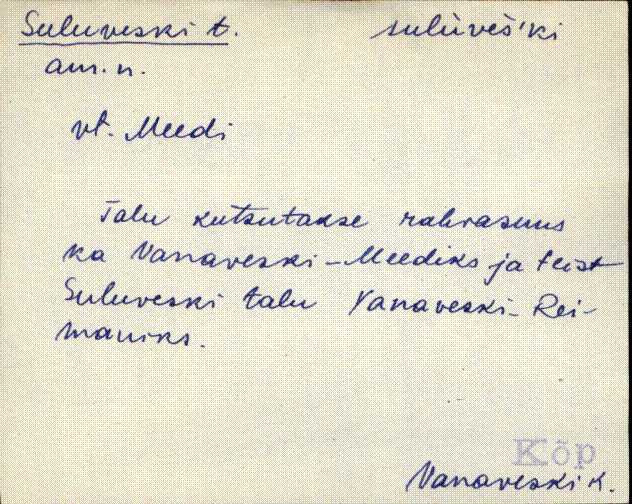 Suluveski t. sulùveš'ki
am. n.
vt. Meedi
Talu kutsutakse rahvasuus
ka Vanaveski-Meediks ja teist
Suluveski talu Vanaveski-Rei-
maniks.
Kõp
Vanaveski k.